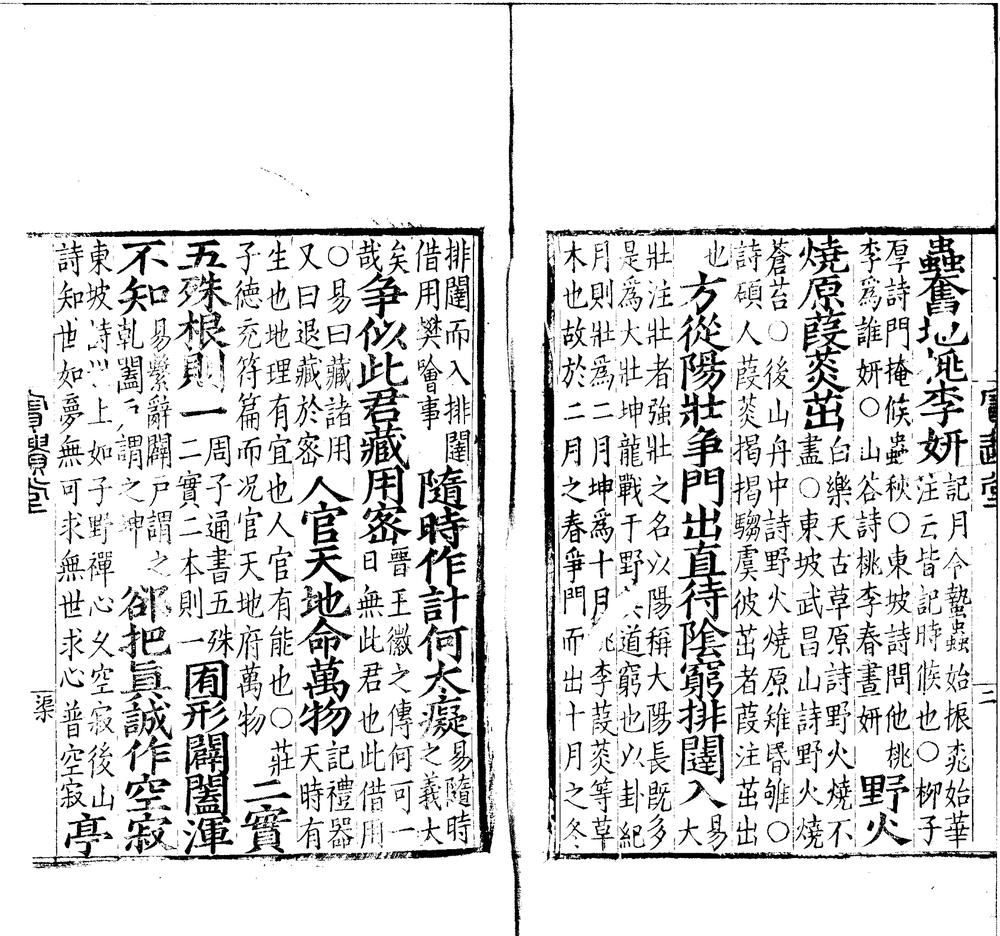 蟲奮地 桃李妍記月令蟄蟲始振桃始華
注云皆記時候也○柳子
厚詩門掩候蟲秋○東坡詩問他桃
李爲誰妍○山谷詩桃李春晝妍野火
燒原葭菼茁白樂天古草原詩野火燒不
盡○東坡武昌山詩野火燒
蒼苔○後山舟中詩野火燒原雉昏雊○
詩碩人葭菼揭揭騶虞彼茁者葭注茁出
也方從陽壯争門出直待陰窮排闥入易
大
壯注壯者強壯之名以陽稱大陽長既多
是爲大壯坤龍戰于野其道窮也以卦紀
月則壯爲二月坤爲十月桃李葭菼等草
木也故於二月之春爭門而出十月之冬
二
排闥而入排闥
借用樊噲事隨時作計何太癡易隨時
之義大
矣
哉争似此君藏用密晉王徽之傳何可一
日無此君也此借用
○易曰藏諸用
又曰退藏於密人官天地命萬物記禮器
天時有
生也地理有宜也人官有能也○莊
子德充符篇而況官天地府萬物二實
五殊根則一周子通書五殊
二實二本則一囿形闢闔渾
不知易繫辭闢戶謂之
乾闔戶謂之坤卻把眞誠作空寂
東坡詩 上如子野禪心久空寂後山
詩知世如夢無可求無世求心普空寂亭
渠